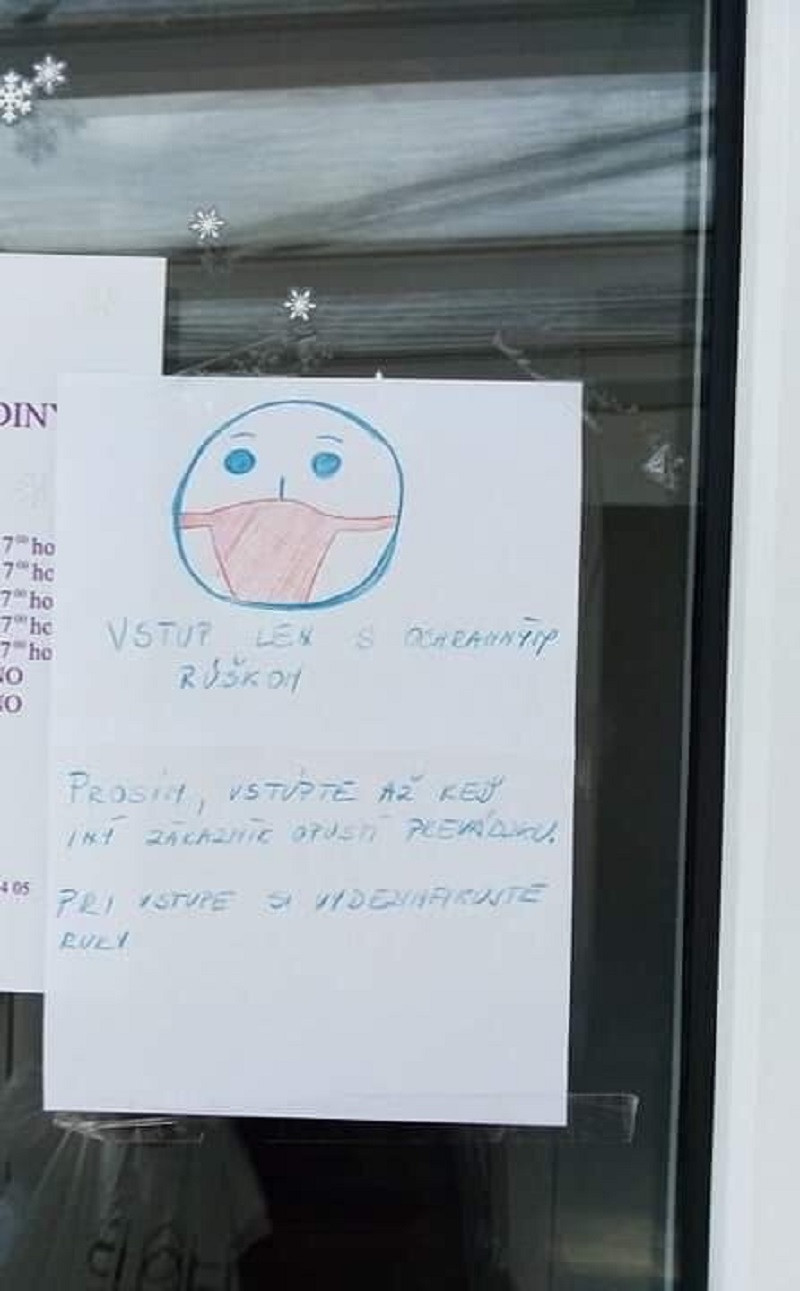 DINY
7⁰⁰ ho
7⁰⁰ ho
7⁰⁰ ho
7⁰⁰ ho
7⁰⁰ ho
NO
NO
4 05
VSTUP LEN S OCHRANNÝM
RÚŠKOM
PROSÍM, VSTÚPTE AŽ KEĎ
INÝ ZÁKAZNÍK OPUSTÍ PREVÁDZKU.
PRI VSTUPE SI VYDEZINFIKUJTE
RUKY